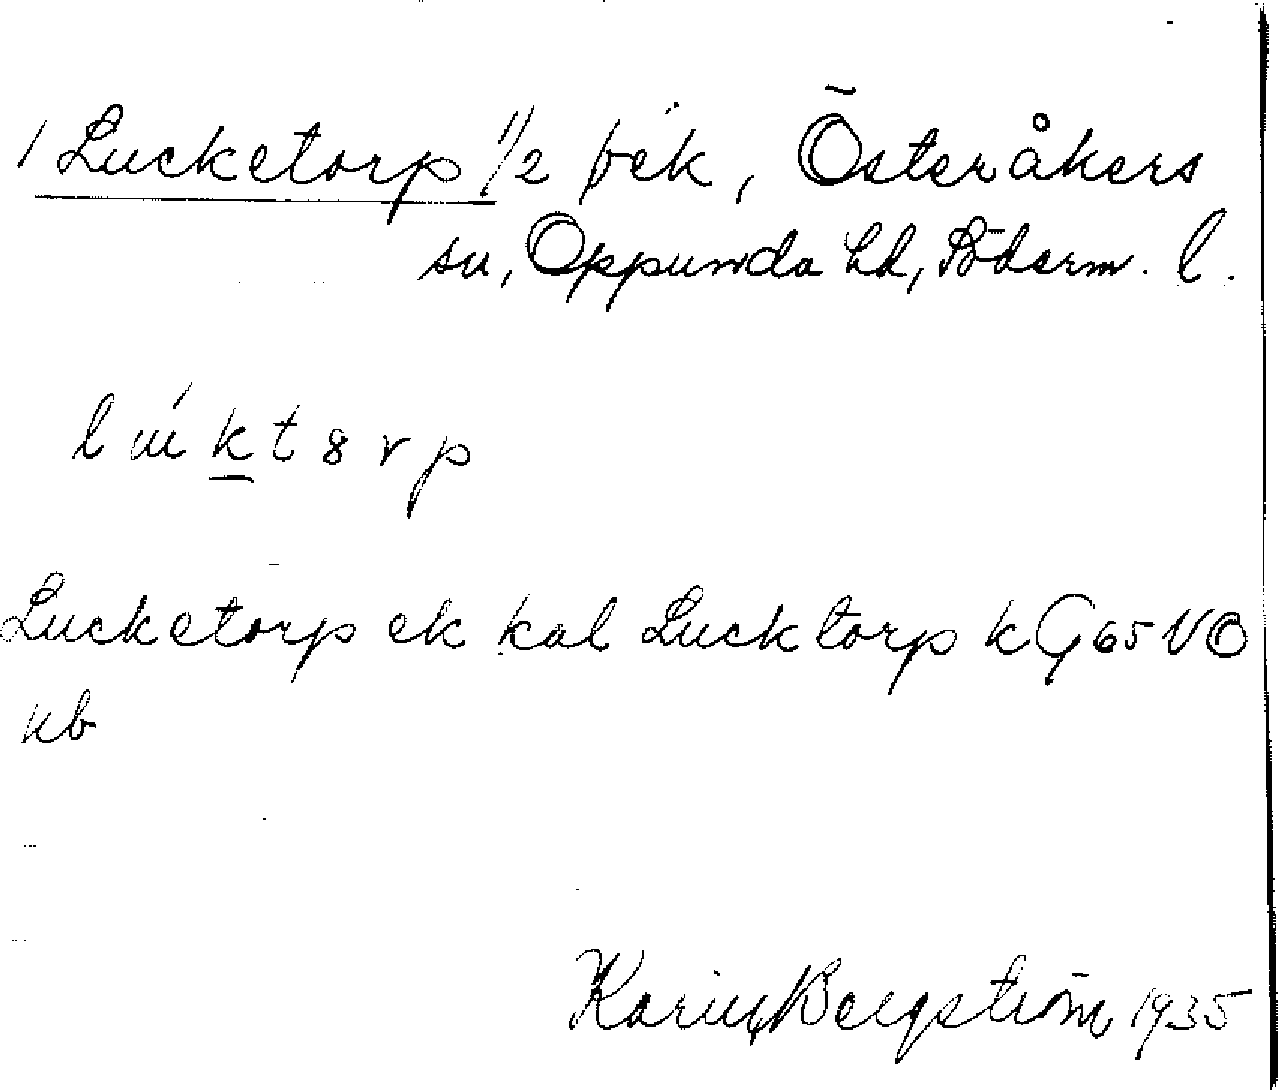 1 Lucketorp 1/2 förk, Österåkers
sn, Oppunda hd, Söderm. l.
Lucketorp ek kal Lucktorp k G 65 VO
kb
Karin Bergström 1935